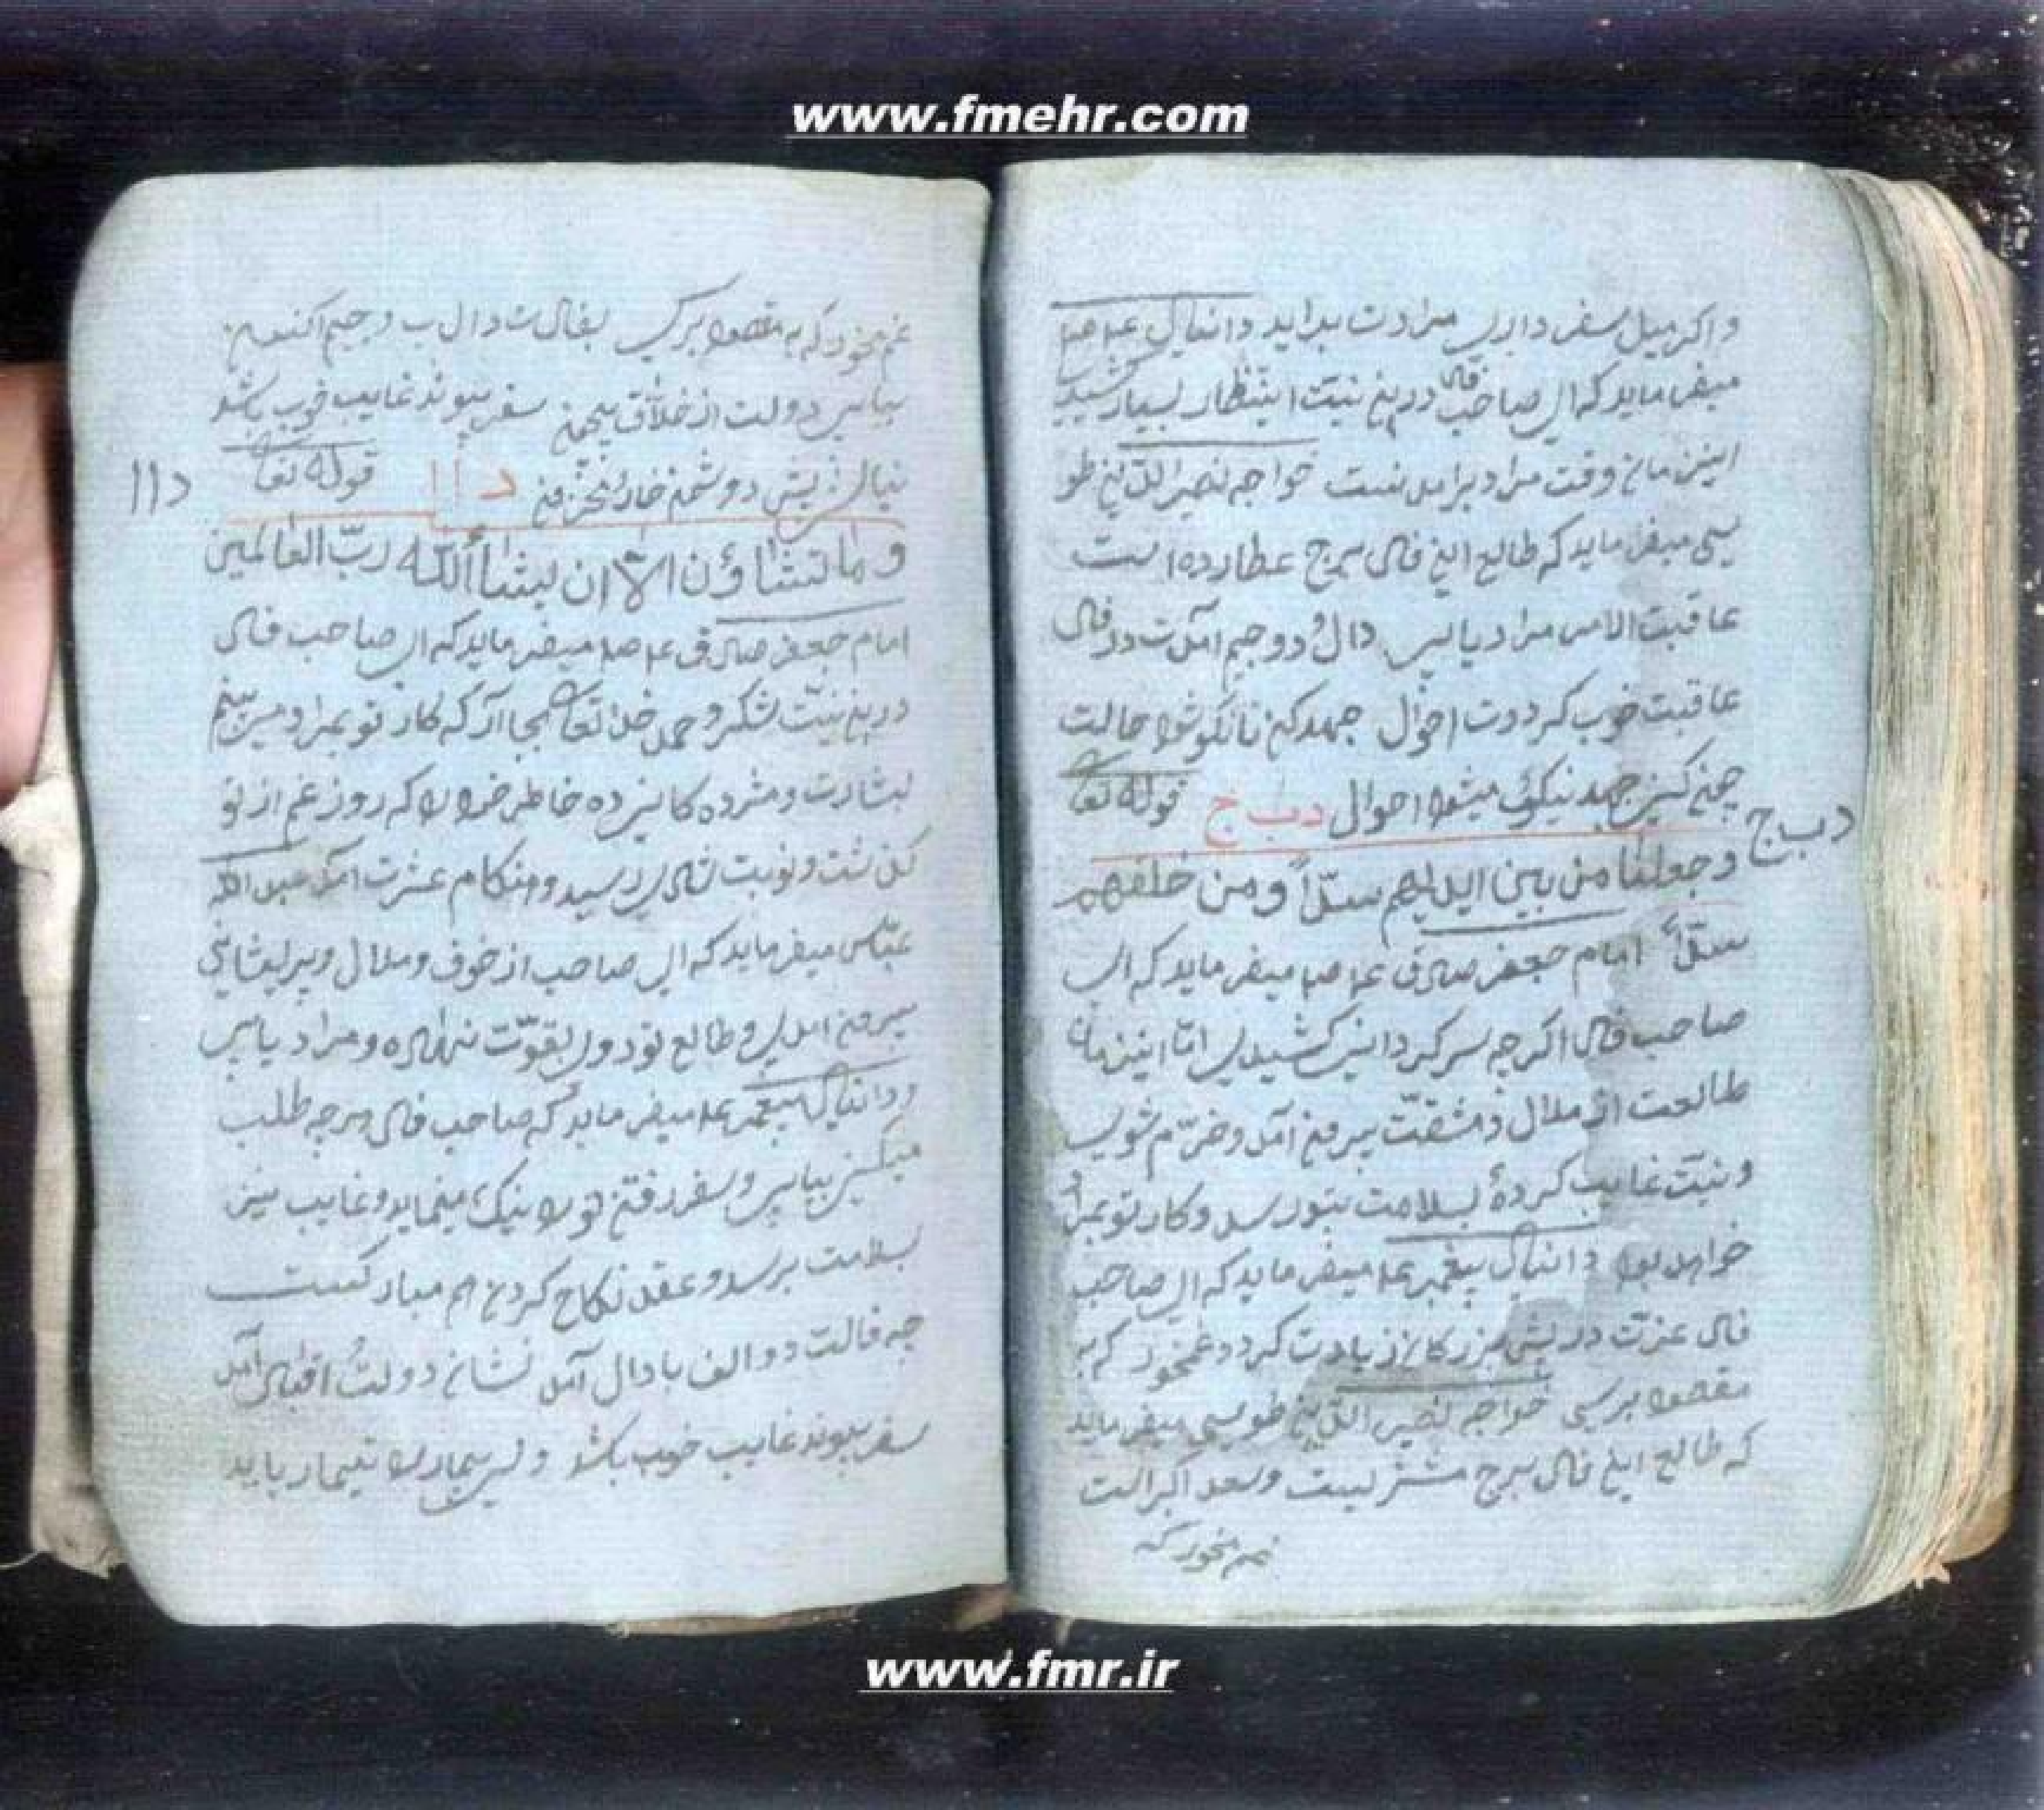 www.fmehr.com
واکر میل سفر داری مرادت براید دانیال ع م
میفرماید که ای صاحب فال درین نیت انتظار بسیار کشیدی
این زمان وقت مراد برامدنست خواجه نصیر الدین طو
سی میفرماید که طالع این فال برج عطارده است
عاقبت الامر مراد یابی دال و دو جیم آمدت در فال
عاقبت خوب کردت احوال جهد کن تا نکو شود حالت
چون کنی جهد نیکوی میشود احوال د ب ج قوله تعا
د ب ج
وجعلنا من بین ایدیهم سدّاً ومن خلفهم
سدّاً امام جعفر صادق میفرماید که ای
صاحب فال اکرچه سرکردانی کشیدی امّا این زمان
طالعت از ملال و مشقّت بیرون آمد و خرّم شوی
و نیّت غایب کردهٔ بسلامت بتو رسد و کار تو بمراد
خواهد بود دانیال پیغمبر میفرماید که ای صاحب
فال عزّت در پیش بزرکان زیادت کردد غمخور که به
مقصود برسی خواجه نصیر الدین طوسی میفرماید
که طالع این فال برج مشتریست وسعد اکبر است
غم مخور که
غم مخور که به مقصود برسی بفالت دال ب و جیم اکنون
بیابی دولت از خلاق بیچون سفر پیوند غایب خوب باشد
قوله تعا د ا ا
د ا ا
وما تشاؤن الآ ان یشاءالله ربّ العالمین
امام جعفر صادق میفرماید که ای صاحب فال
درین نیّت شکر و حمد خدای تعا بجا آر که کار تو بمراد می بینم
بشارت و مژده کانی ده خاطر خود را که روز غم از تو
کذشت و نوبت شادی رسید و هنکام عشرت آمد عبد الله
عبّاس میفرماید که ای صاحب از خوف و ملال و پریشانی
بیرون آمدی و طالع تو رو بقوّت نهاده و مراد یابی
و دانیال پیغمبر میفرماید که صاحب فال هرچه طلب
میکنی بیابی و سفر رفتن تو را نیک مینماید و غایب نیز
بسلامت برسد و عقد نکاح کردن هم مبارکست
چه فالت دو الف با دال آمد نشان دولت و اقبال آمد
سفر پیوند غایب خوب باشد ولی بیمار را تیمار باید
www.fmr.ir